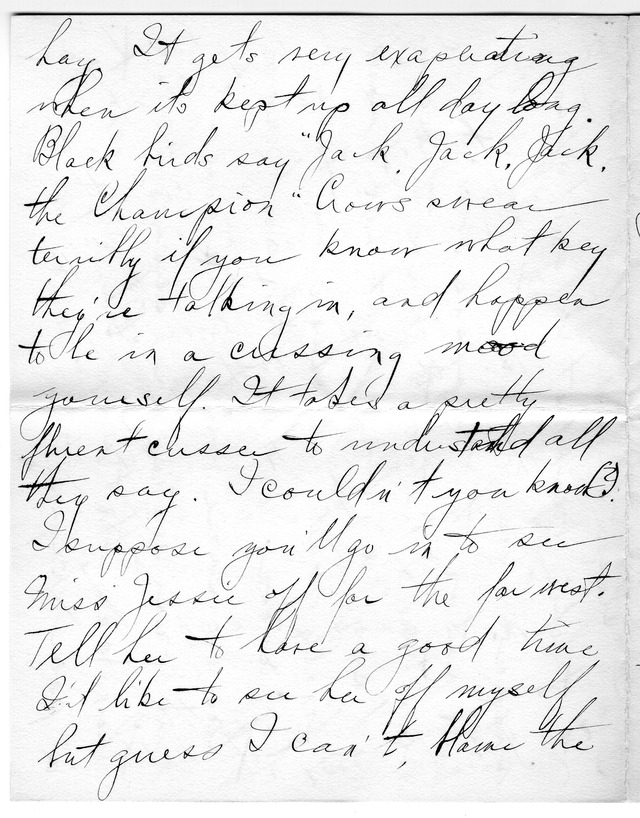 hay. It gets very exasperating
when its kept up all day long.
Black birds say "Jack. Jack. Jack.
the Champion" Crows swear
terribly if you know what key
they're talking in, and happen
to be in a cussing mood
yourself. It takes a pretty
fluent cusser to understand all
they say. I couldn't you know(?).
I suppose you'll go in to see
Miss Jessie off for the far west.
Tell her to have a good time
I'd like to see her off myself
but guess I can't, blame the